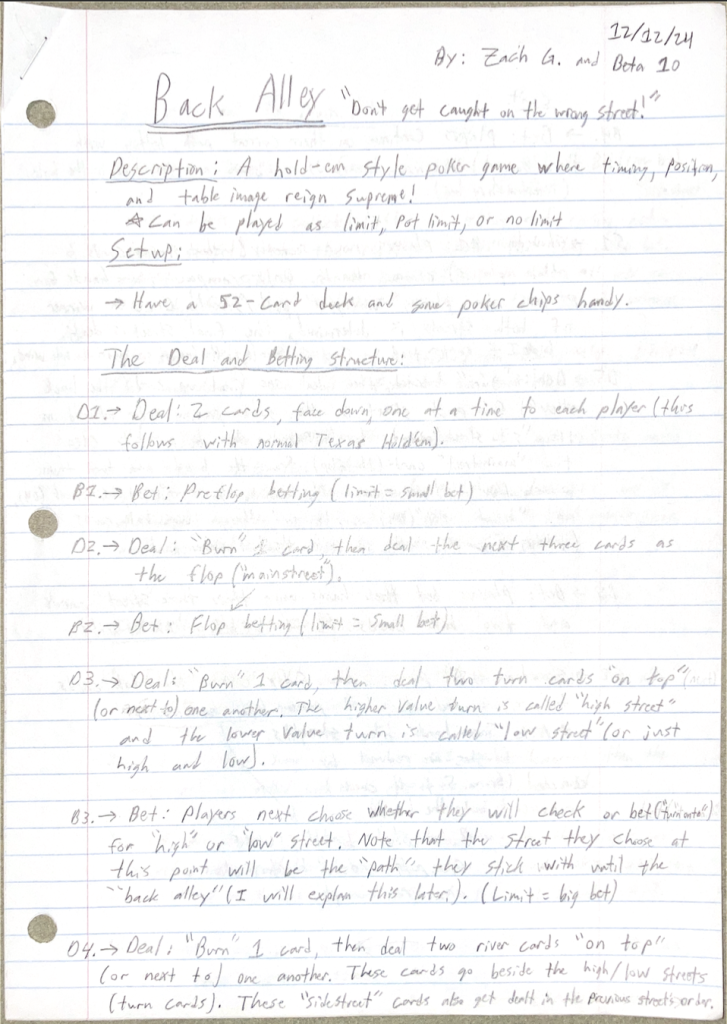 12/12/24
By: Zach G. and Beta 10
Back Alley "Don't get caught on the wrong street!"
Description: A hold-em style poker game where timing, position,
and table image reign supreme!
☆ Can be played as limit, pot limit, or no limit
Setup:
→ Have a 52-card deck and some poker chips handy.
The Deal and Betting structure:
D1.→ Deal: 2 cards, face down, one at a time to each player (this
follows with normal Texas Hold'em).
B1.→ Bet: Preflop betting (limit = small bet)
D2.→ Deal: "Burn" 1 card, then deal the next three cards as
the flop ("mainstreet").
B2.→ Bet: Flop betting (limit = small bet)
D3.→ Deal: "Burn" 1 card, then deal two turn cards "on top"
(or next to) one another. The higher value turn is called "high street"
and the lower value turn is called "low street" (or just
high and low).
B3.→ Bet: Players next choose whether they will check or bet ("turn onto")
for "high" or "low" street. Note that the street they choose at
this point will be the "path" they stick with until the
"back alley" (I will explain this later.). (Limit = big bet)
D4.→ Deal: "Burn" 1 card, then deal two river cards "on top"
(or next to) one another. These cards go beside the high/low streets
(turn cards). These "sidestreet" cards also get dealt in the previous streets order.